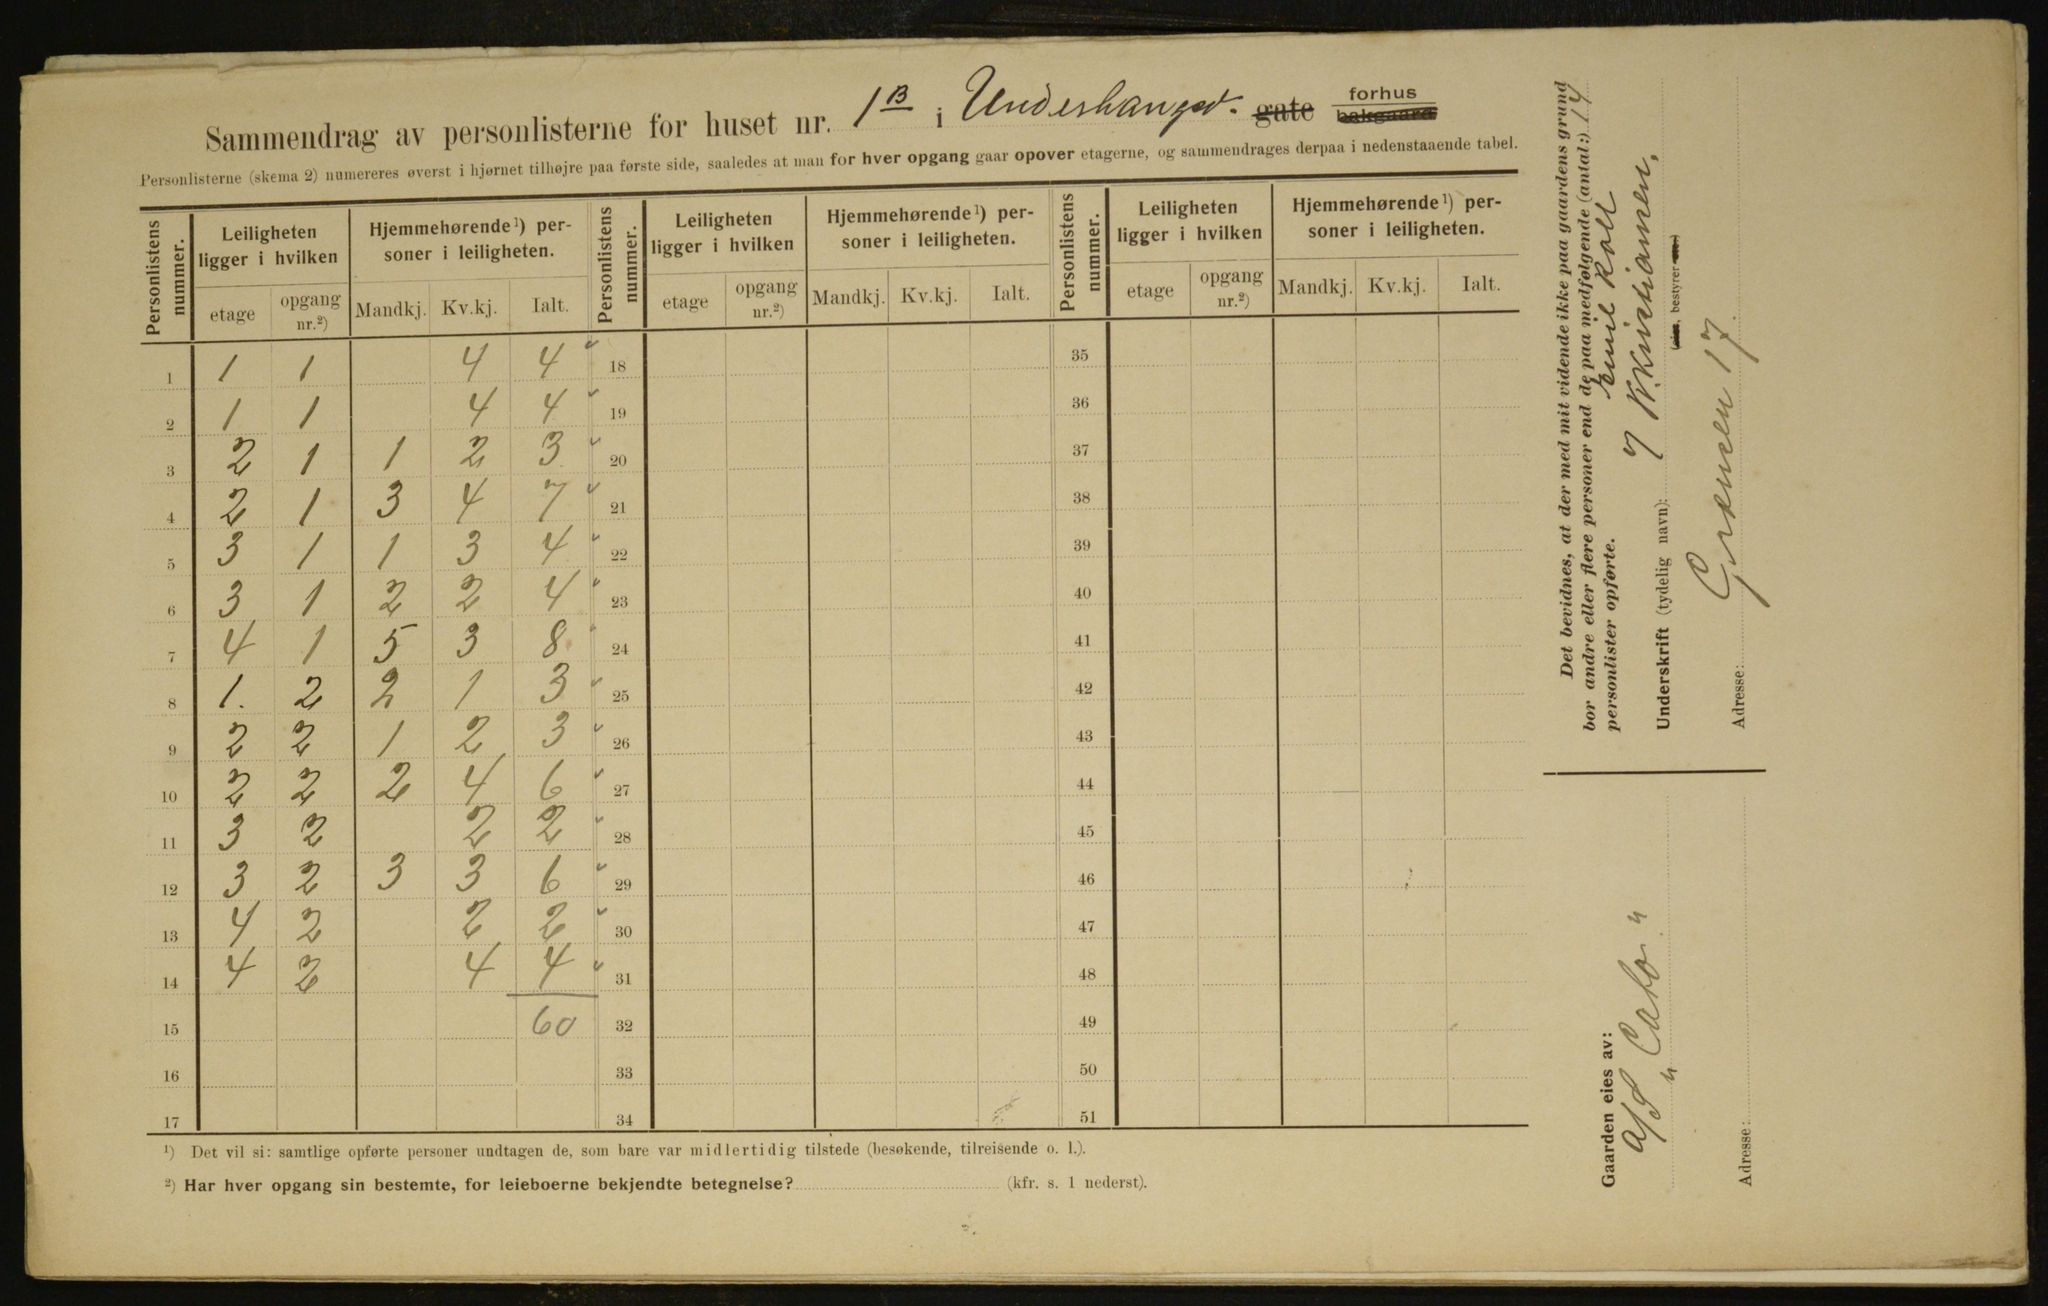 Sammendrag av personlisterne for huset nr. 1B i Underhaugsv. gate forhus bakgaard
Personlisterne (skema 2) numereres øverst i hjørnet tilhøjre paa første side, saaledes at man for hver opgang gaar opover etagerne, og sammendrages derpaa i nedenstaaende tabel.
Personlistens nummer. Leiligheten ligger i hvilken Hjemmehørende ¹) personer i leiligheten. Personlistens nummer. Leiligheten ligger i hvilken Hjemmehørende ¹) personer i leiligheten. Personlistens nummer. Leiligheten ligger i hvilken Hjemmehørende ¹) personer i leiligheten.
etage opgang nr.²) Mandkj. Kv.kj. Ialt. etage opgang nr.²) Mandkj. Kv.kj. Ialt. etage opgang nr.²) Mandkj. Kv.kj. Ialt.
1 1 1 4 4 18 35
2 1 1 4 4 19 36
3 2 1 1 2 3 20 37
4 2 1 3 4 7 21 38
5 3 1 1 3 4 22 39
6 3 1 2 2 4 23 40
7 4 1 5 3 8 24 41
8 1. 2 2 1 3 25 42
9 2 2 1 2 3 26 43
10 2 2 2 4 6 27 44
11 3 2 2 2 28 45
12 3 2 3 3 6 29 46
13 4 2 2 2 30 47
14 4 2 4 4 31 48
15 60 32 49
16 33 50
17 34 51
¹) Det vil si: samtlige opførte personer undtagen de, som bare var midlertidig tilstede (besøkende, tilreisende o. l.).
²) Har hver opgang sin bestemte, for leieboerne bekjendte betegnelse? (kfr. s. 1 nederst).
Det bevidnes, at der med mit vidende ikke paa gaardens grund
bor andre eller flere personer end de paa medfølgende (antal:) 14
personlister opførte. Emil
Underskrift (tydelig navn): Kristiansen,
(eier, bestyrer etc.)
Adresse: Grænsen 17.
Gaarden eies av:
A/S "Cato"
Adresse: